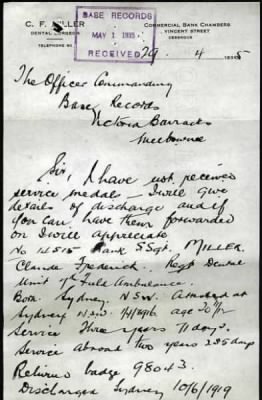 C. F. MILLER
DENTAL SURGEON
TELEPHONE No.
BASE RECORDS
MAY 1 1935
RECEIVED
COMMERCIAL BANK CHAMBERS
VINCENT STREET
CESSNOCK
29 4 1935
The Officer Commanding
Base Records
Victoria Barracks
Melbourne
Sir, I have not received
service medals - I will give
details of discharge and if
you can have them forwarded
on I will appreciate
No 14515 Rank S Sgt. MILLER.
Claude Frederick. Regt Dental
Unit Field Ambulance.
Born Sydney N.S.W. Attested at
Sydney N.S.W. age
Service Three years 71 days.
Service abroad two years 235 days
Returned badge 98043.
Discharged Sydney 10/6/1919